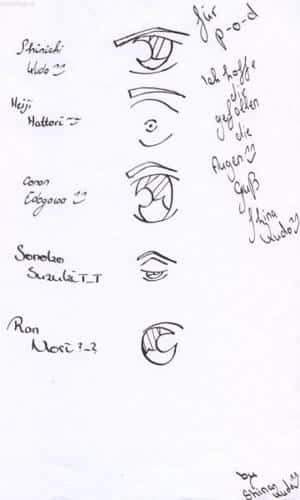 Shinichi
Kudo
Heiji
Hattori
Conan
Edogawa
Sonoko
Suzuki T_T
Ran
Mori ?_?
für
p-o-d
Ich hoffe
die
gefallen
die
Augen
Gruß
Shina
Kudo
by
Shina
Kudo